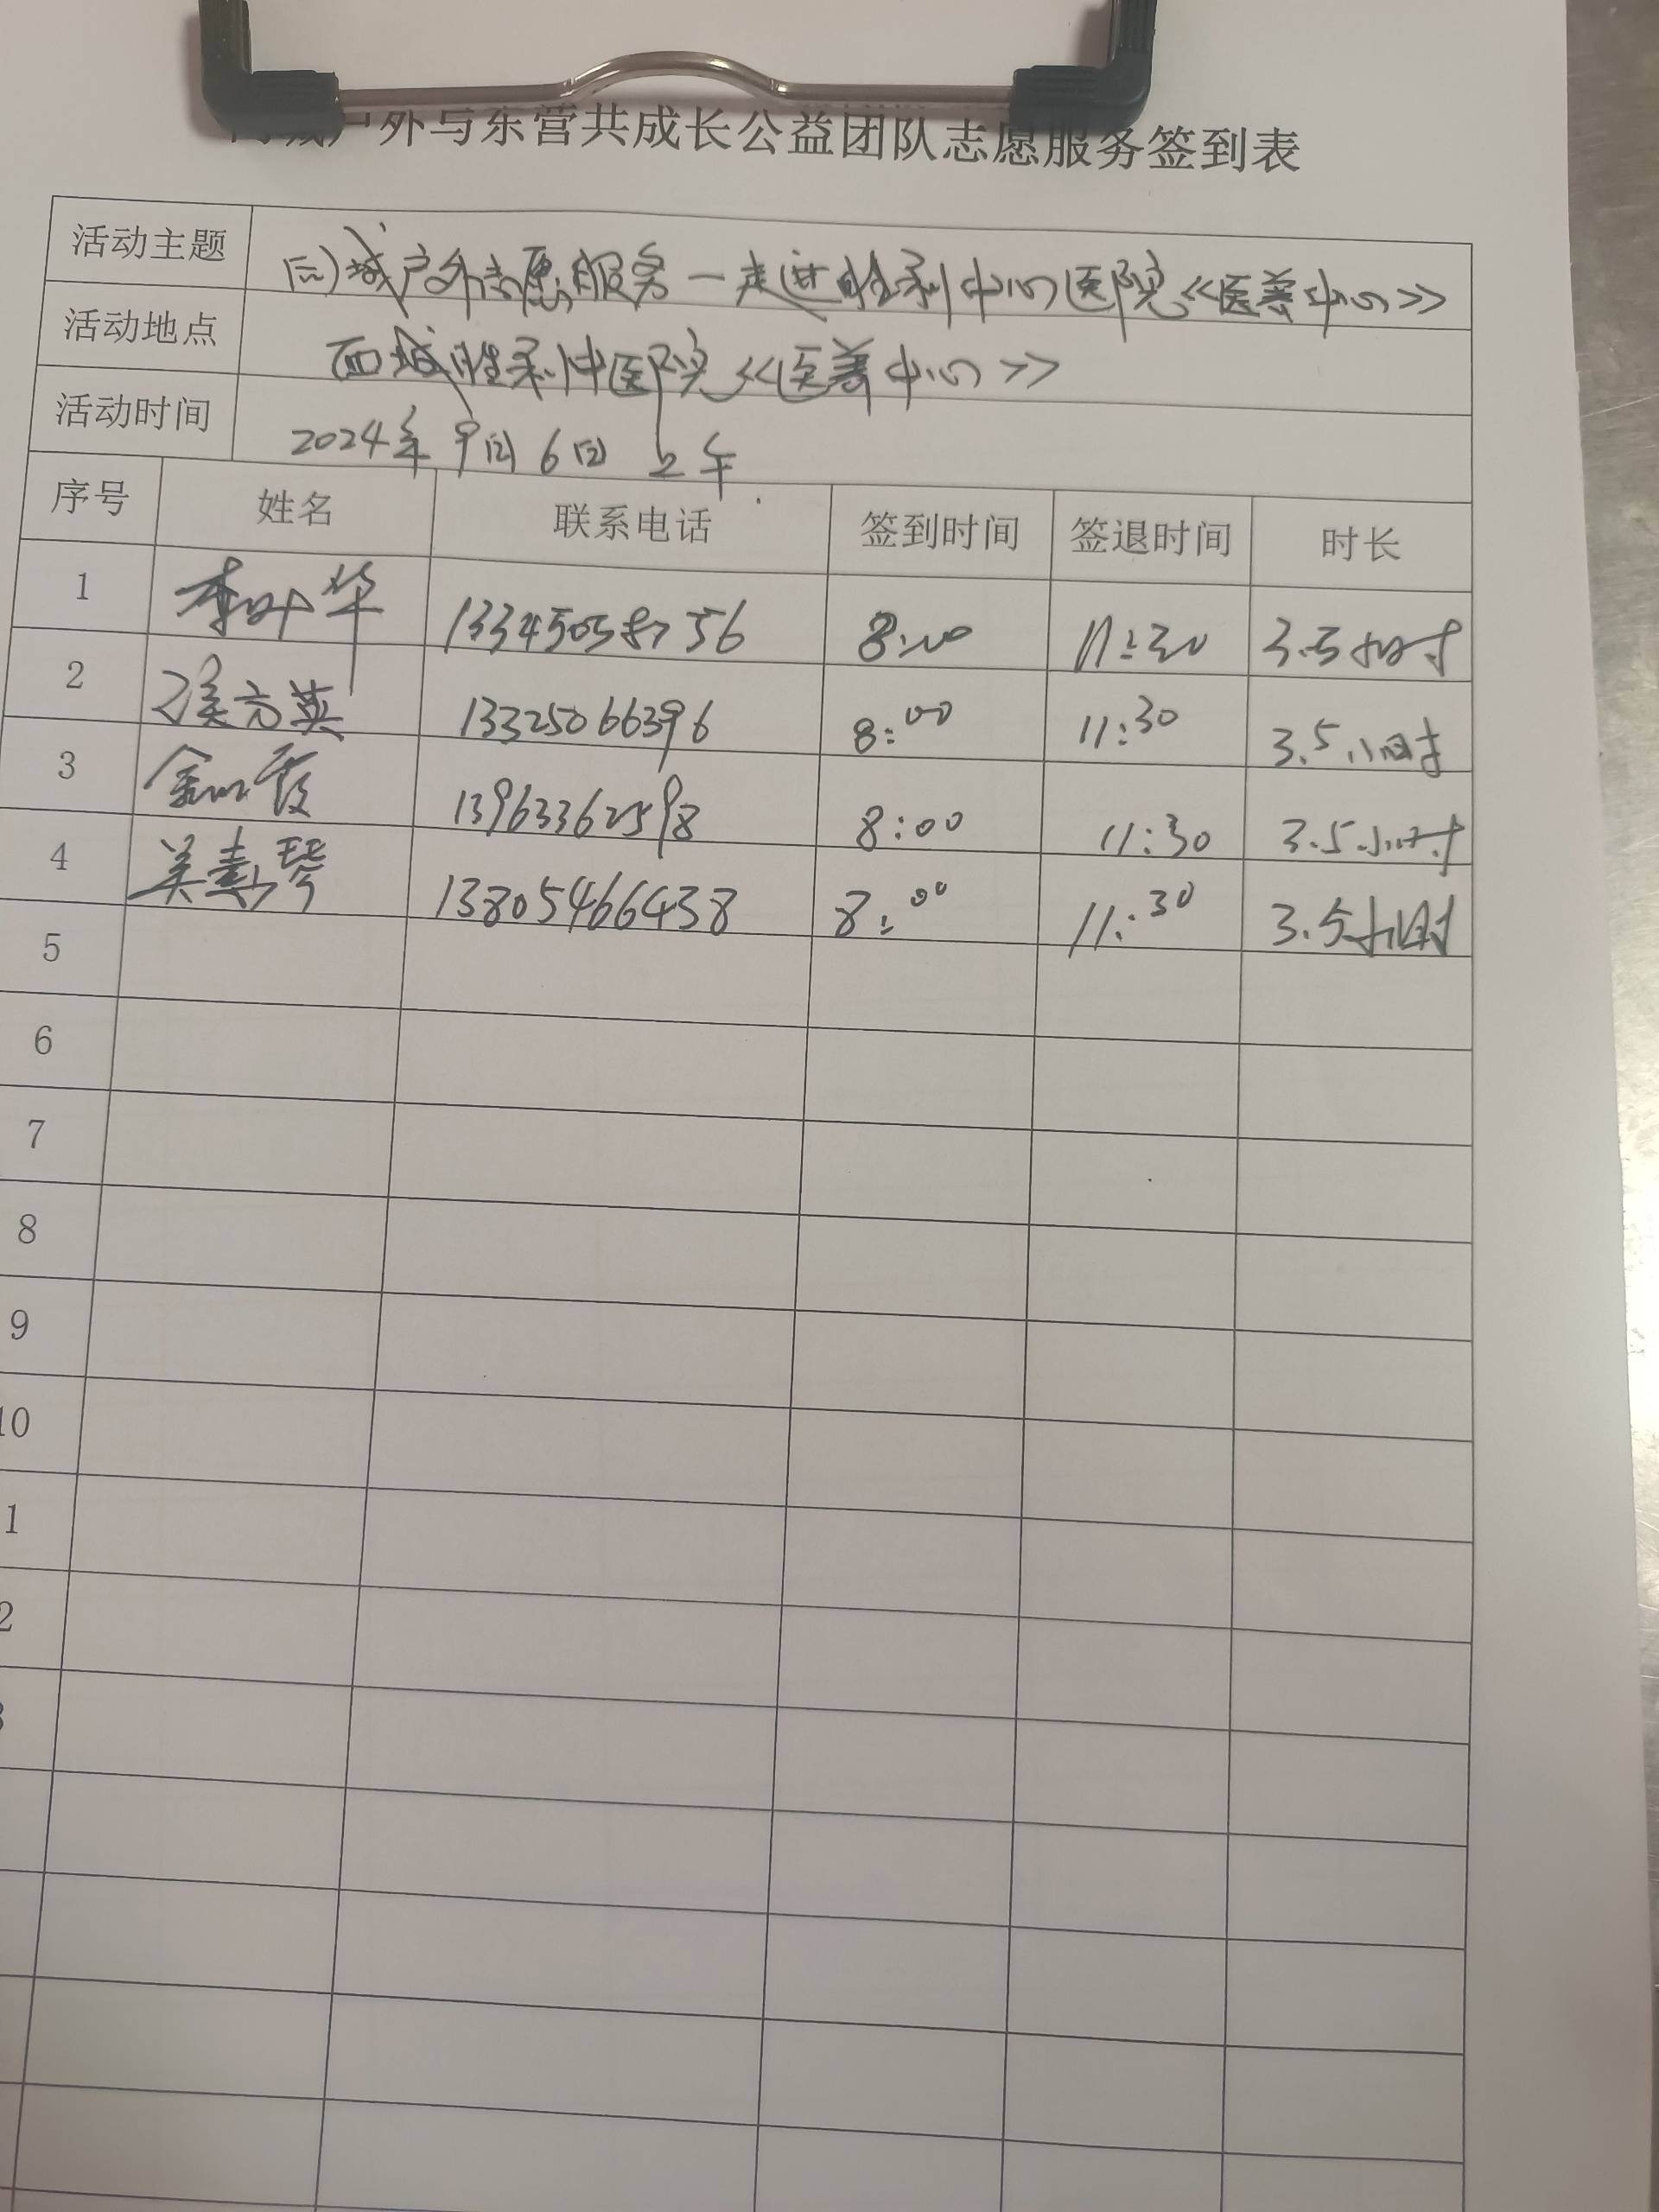 户外与东营共成长公益团队志愿服务签到表
活动主题 同城户外志愿服务一走进胜利中心医院《医养中心》
活动地点 西城胜利中医院《医养中心》
活动时间 2024年9月6日 上午
序号 姓名 联系电话 签到时间 签退时间 时长
1 李叶华 8:00 11:30 3.5小时
2 13325066396 8:00 11:30 3.5小时
3 13963362598 8:00 11:30 3.5小时
4 吴素琴 13805466438 8:00 11:30 3.5小时
5
6
7
8
9
10
1
2
3